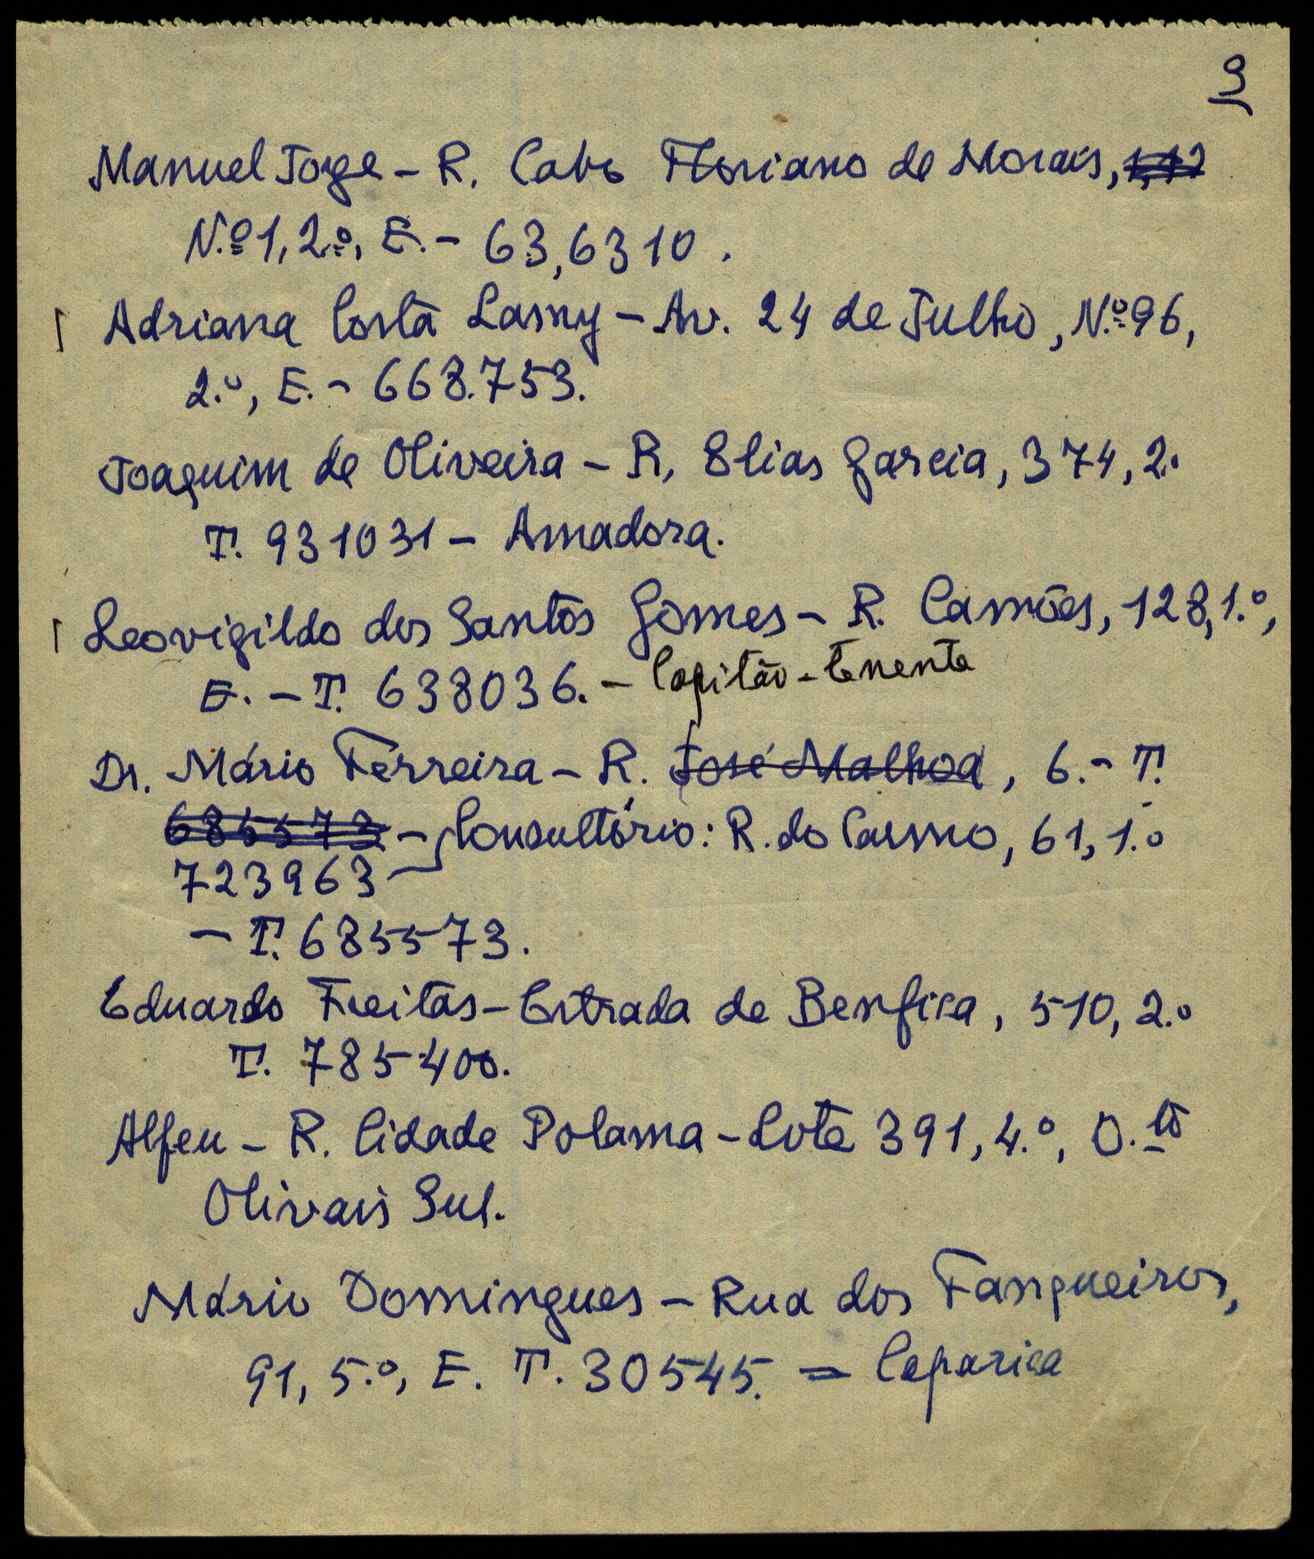 9
Manuel Jorge - R. Cabo Floriano de Morais,
N.º 1, 2.º, E. - 63,6310.
Adriana Costa Lamy - Av. 24 de Julho, N.º 96,
2.º, E. - 668.753.
Joaquim de Oliveira - R. Elias Garcia, 374, 2.
T. 931031 - Amadora.
Leovigildo dos Santos Gomes - R. Camões, 128, 1.º,
E. - T. 638036. - Capitão-tenente
Dr. Mário Ferreira - R. José Malhoa, 6. - T.
685573 - Consultório: R. do Carmo, 61, 1.º
723963
- T. 685573.
Eduardo Freitas - Estrada de Benfica, 510, 2.º
T. 785400.
Alfeu - R. Cidade Bolama - Lote 391, 4.º, D.to
Olivais Sul.
Mário Domingues - Rua dos Fanqueiros,
91, 5.º, E. T. 30545. = Caparica